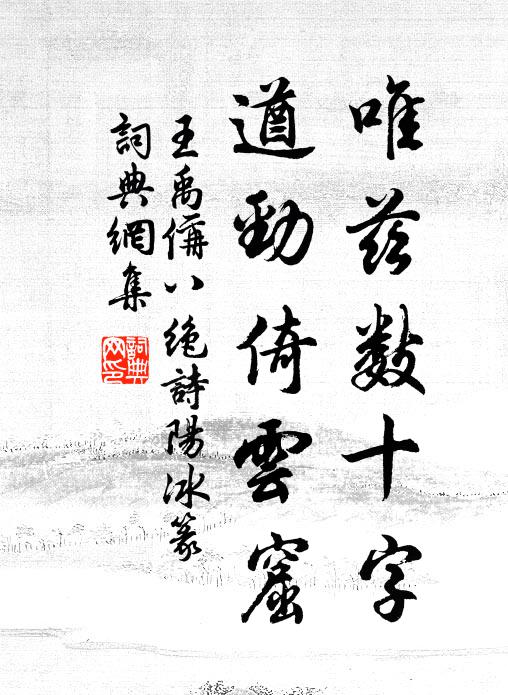 唯茲數十字
遒勁倚雲窟
王禹偁八絶詩陽冰篆
詞典網集
詞典網印